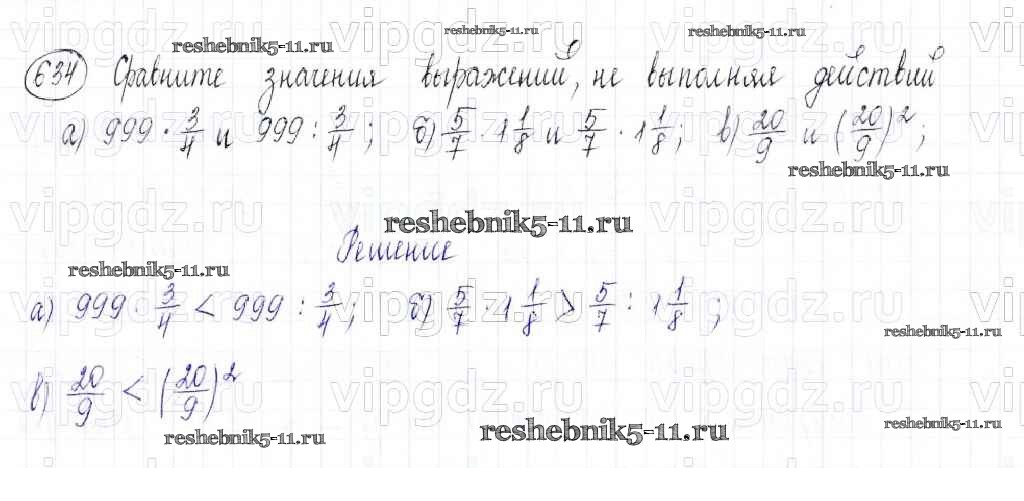 reshebnik5-11.ru reshebnik5-11.ru reshebnik5-11.ru
634 Сравните значения выражений, не выполняя действий
а) 999 · 3/4 и 999 : 3/4; б) 5/7 · 1 1/8 и 5/7 · 1 1/8; в) 20/9 и (20/9)²;
reshebnik5-11.ru
vipgdz.ru vipgdz.ru vipgdz.ru vipgdz.ru
reshebnik5-11.ru
Решение
reshebnik5-11.ru
а) 999 · 3/4 < 999 : 3/4; б) 5/7 · 1 1/8 > 5/7 : 1 1/8;
reshebnik5-11.ru
в) 20/9 < (20/9)²
vipgdz.ru vipgdz.ru vipgdz.ru vipgdz.ru
reshebnik5-11.ru reshebnik5-11.ru reshebnik5-11.ru